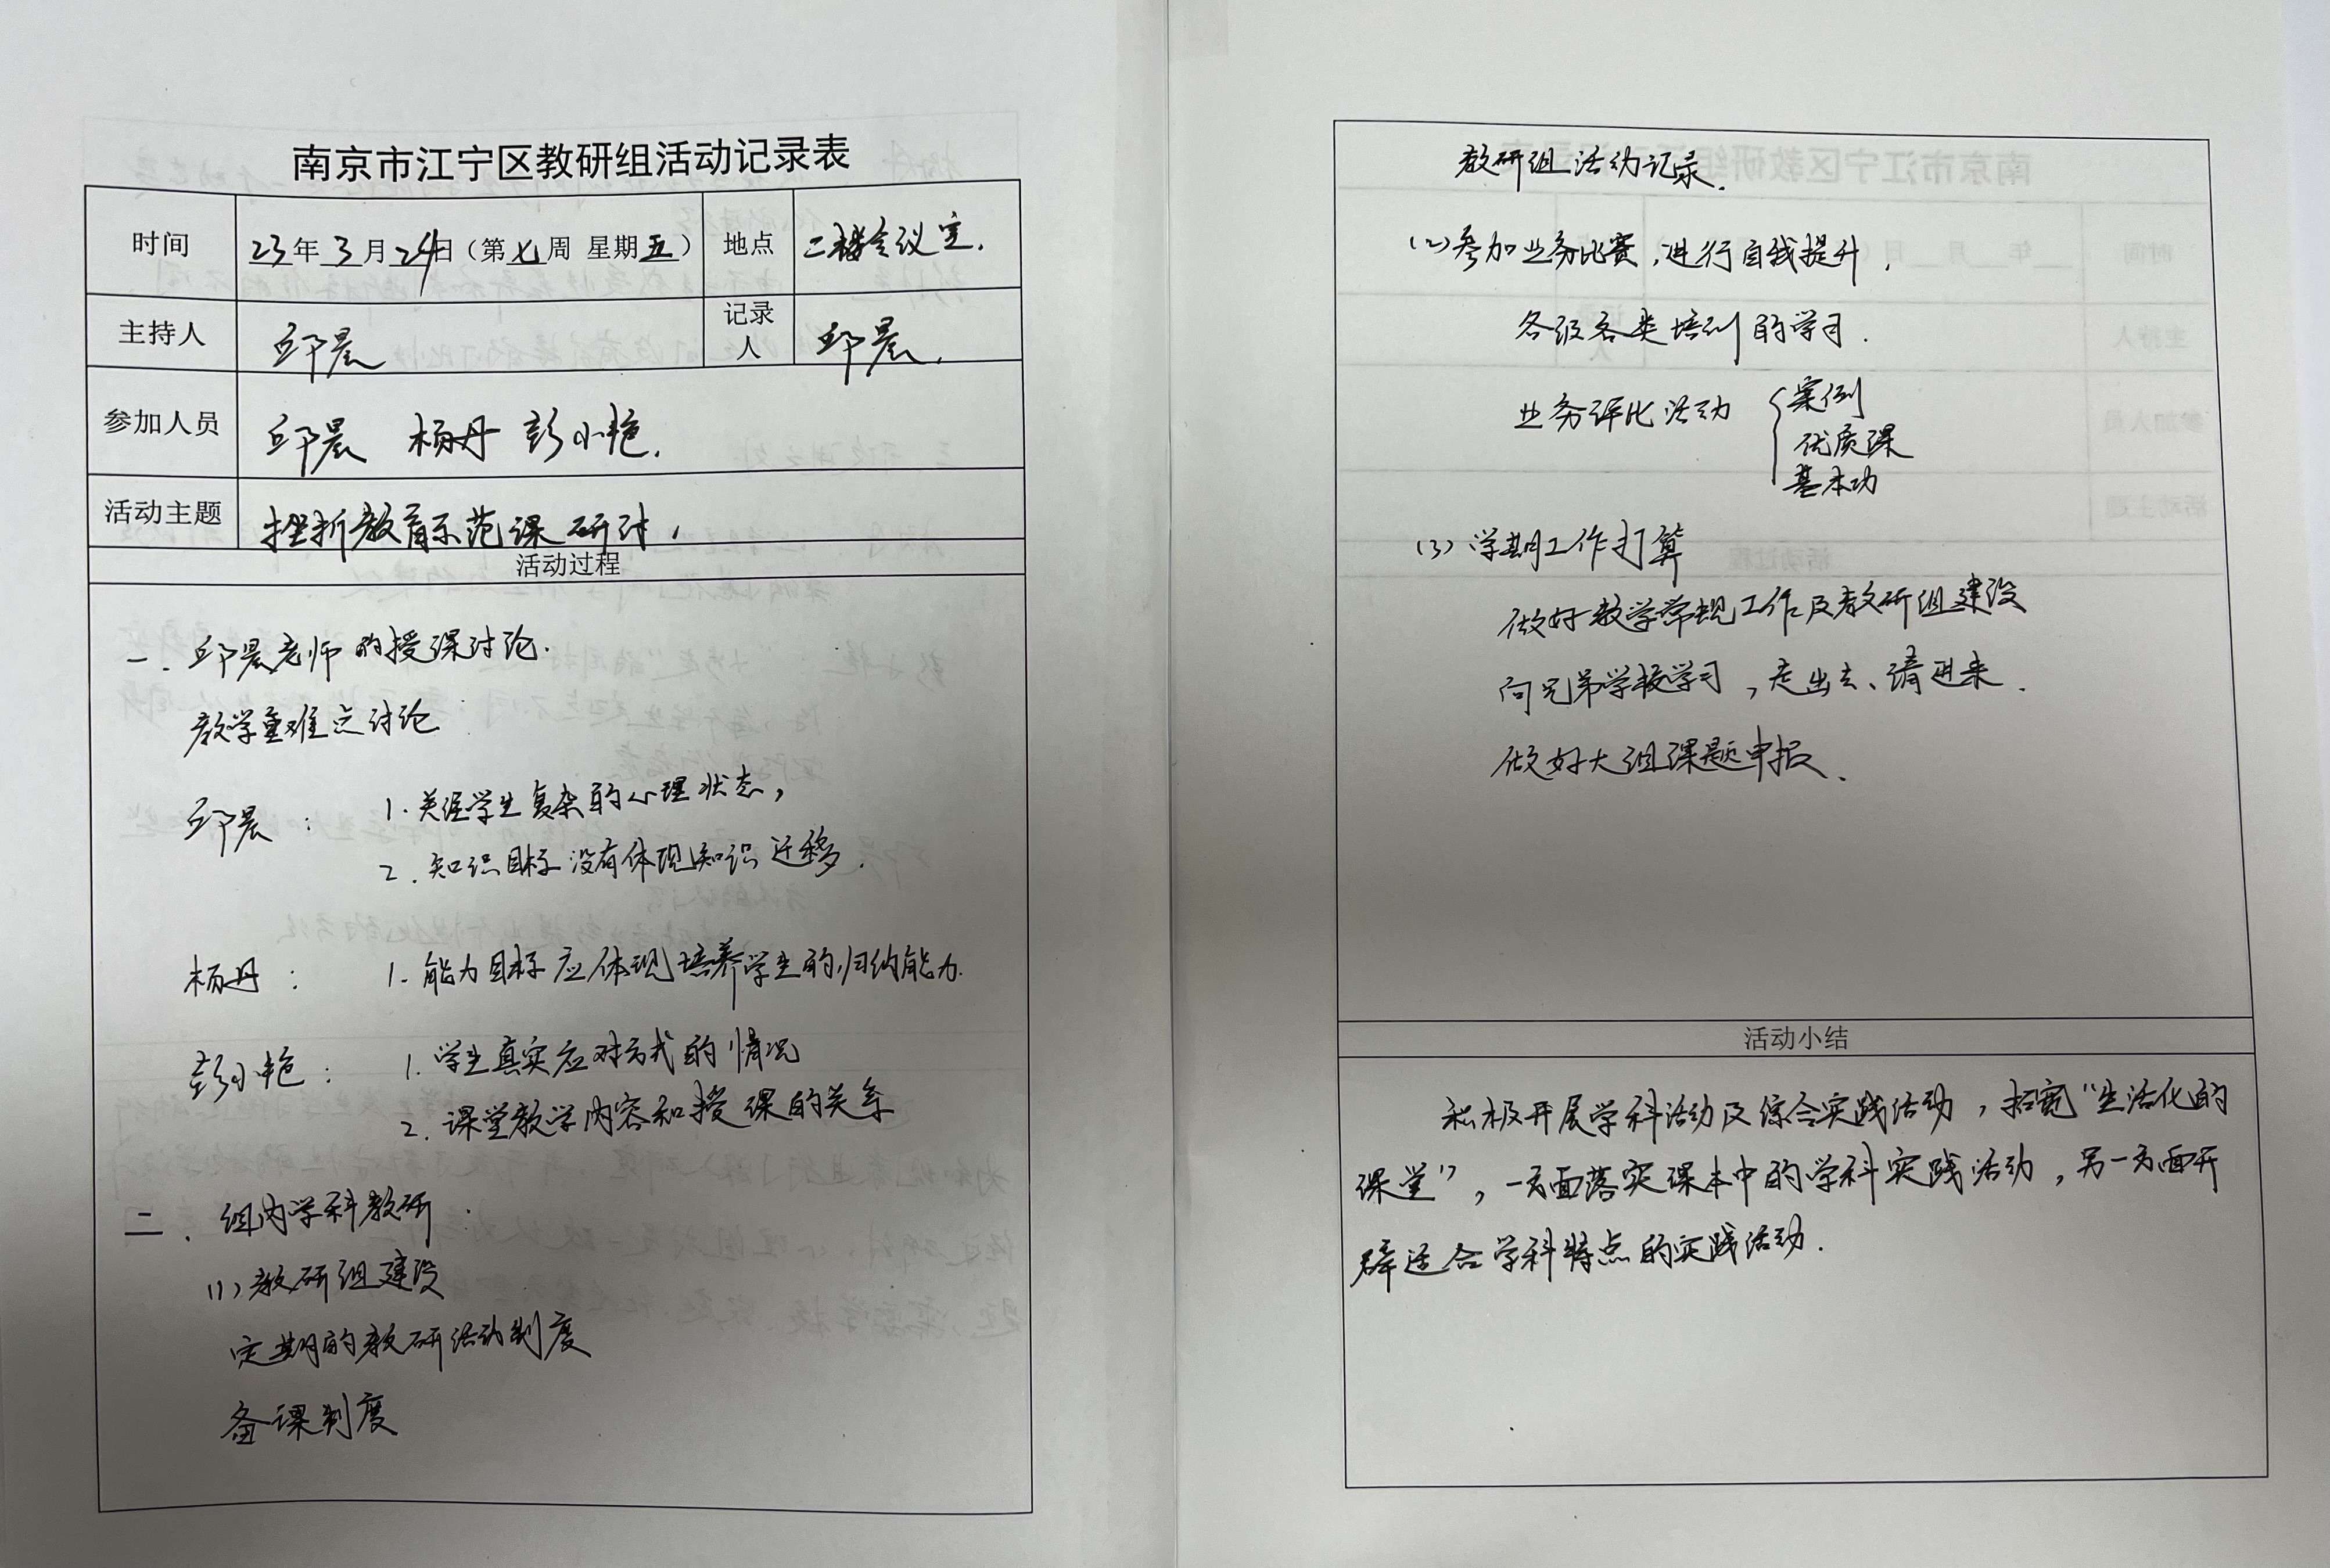 南京市江宁区教研组活动记录表
时间 23年3月24日（第七周 星期五） 地点 二楼会议室.
主持人 邱晨 记录人 邱晨.
参加人员 邱晨 杨丹 彭小艳.
活动主题 挫折教育示范课研讨.
活动过程
一. 邱晨老师的授课讨论.
教学重难点讨论:
邱晨: 1. 关注学生复杂的心理状态,
2. 知识目标没有体现知识迁移.
杨丹: 1. 能力目标应体现培养学生的归纳能力.
彭小艳: 1. 学生真实应对方式的情况
2. 课堂教学内容和授课的关系
二. 组内学科教研:
(1) 教研组建设
定期的教研活动制度
备课制度
教研组活动记录.
(2) 参加业务比赛,进行自我提升.
各级各类培训的学习.
业务评比活动 { 案例
优质课
基本功
(3) 学期工作打算
做好教学常规工作及教研组建设
向兄弟学校学习,走出去、请进来.
做好大组课题申报.
活动小结
积极开展学科活动及综合实践活动,拓宽“生活化的
课堂”,一方面落实课本中的学科实践活动,另一方面开
辟适合学科特点的实践活动.